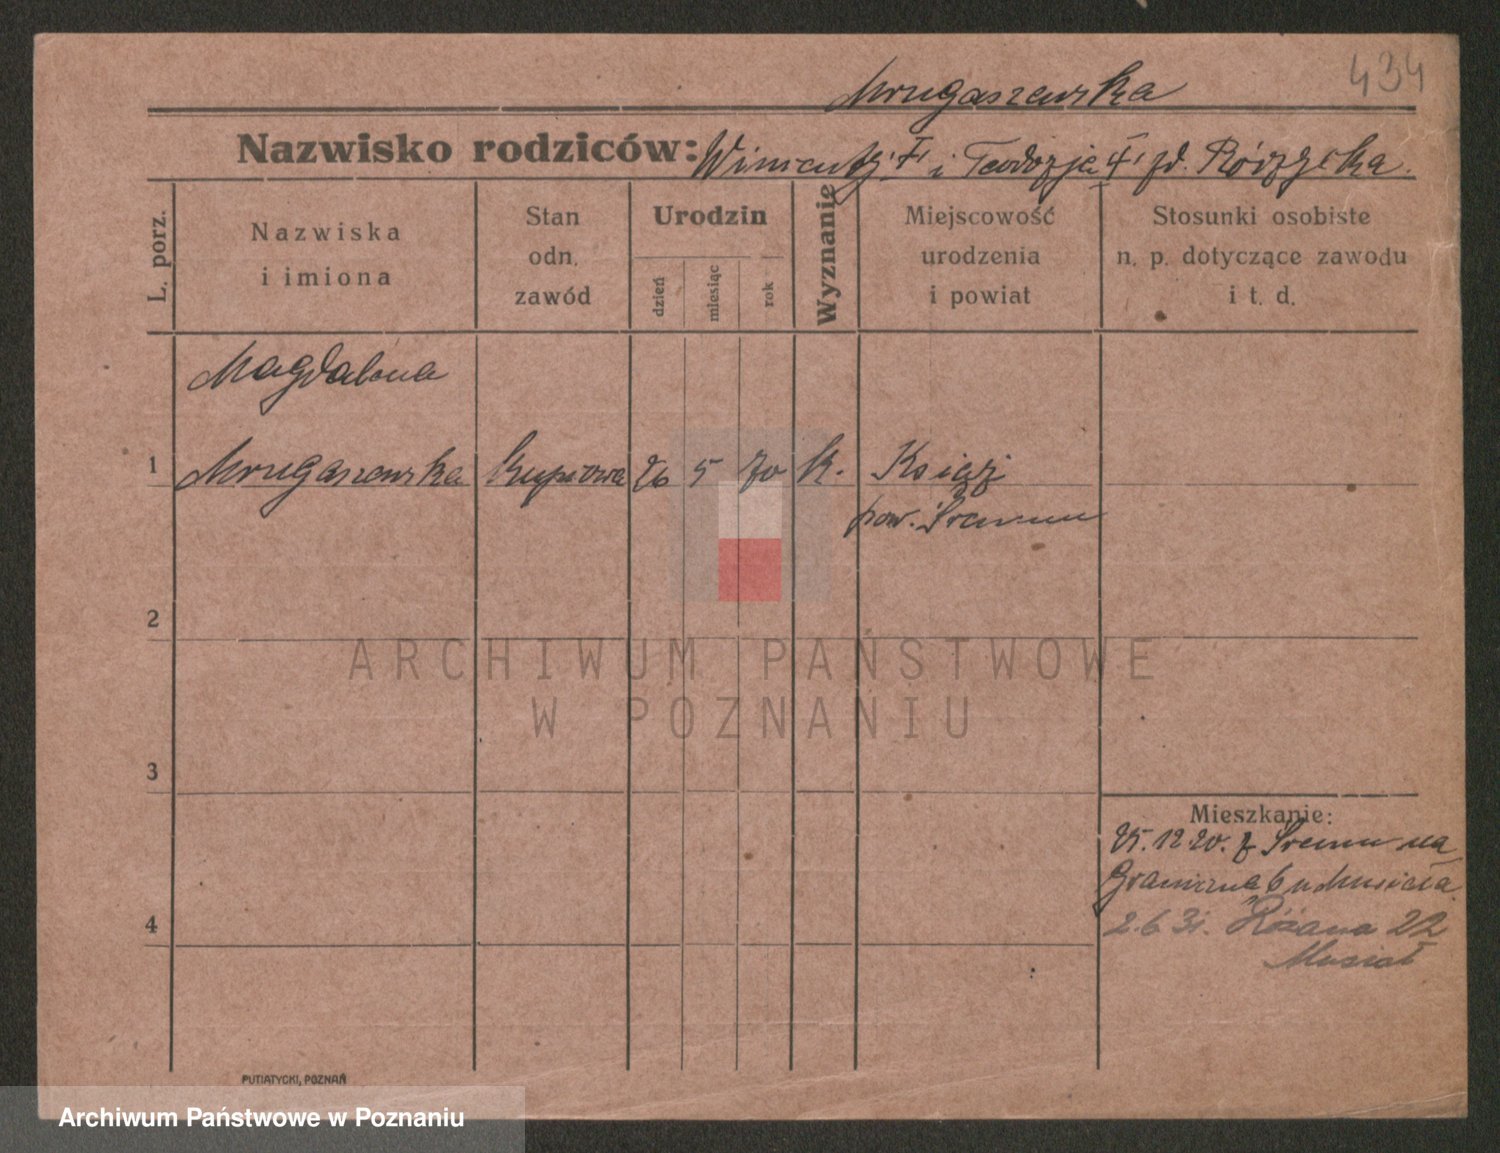 434
Mrugaszewska
Nazwisko rodziców: Wincenty † i Teodozja † zd. Różycka.
L. porz.
Nazwiska
i imiona
Stan
odn.
zawód
Urodzin
dzień
miesiąc
rok
Wyznanie
Miejscowość
urodzenia
i powiat
Stosunki osobiste
n. p. dotyczące zawodu
i t. d.
Magdalena
1 Mrugaszewska 26 5 70 k. Książ
pow. Śremm
2
3
4
Mieszkanie:
25.12 20. z Śremu na
Graniczna 6 u Musiała
2.6 31. Różana 22
Musiał
PUTIATYCKI, POZNAŃ
ARCHIWUM PAŃSTWOWE
W POZNANIU
Archiwum Państwowe w Poznaniu